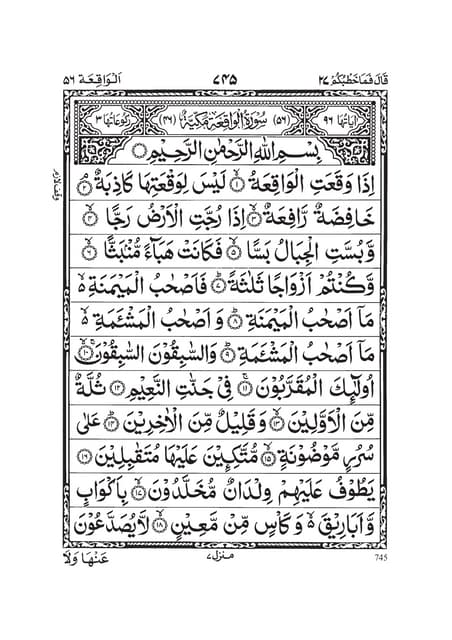 قَالَ فَمَا خَطْبُكُمْ ٢٧ ٧٤٥ اَلْوَاقِعَة ٥٦
اٰيَاتُهَا ٩٦ (٥٦) سُوْرَةُ الْوَاقِعَةِ مَكِّيَّةٌ (٤٦) رُكُوْعَاتُهَا ٣
بِسْمِ اللّٰهِ الرَّحْمٰنِ الرَّحِيْمِ
اِذَا وَقَعَتِ الْوَاقِعَةُ ۙ‏﴿١﴾ لَيْسَ لِوَقْعَتِهَا كَاذِبَةٌ ۘ‏﴿٢﴾
خَافِضَةٌ رَّافِعَةٌ ۙ‏﴿٣﴾ اِذَا رُجَّتِ الْاَرْضُ رَجًّا ۙ‏﴿٤﴾
وَّبُسَّتِ الْجِبَالُ بَسًّا ۙ‏﴿٥﴾ فَكَانَتْ هَبَآءً مُّنْۢبَثًّا ۙ‏﴿٦﴾
وَّكُنْتُمْ اَزْوَاجًا ثَلٰثَةً ؕ‏﴿٧﴾ فَاَصْحٰبُ الْمَيْمَنَةِ ۙ
مَاۤ اَصْحٰبُ الْمَيْمَنَةِ ؕ‏﴿٨﴾ وَ اَصْحٰبُ الْمَشْئَمَةِ ۙ
مَاۤ اَصْحٰبُ الْمَشْئَمَةِ ؕ‏﴿٩﴾ وَالسّٰبِقُوْنَ السّٰبِقُوْنَ ۚۙ‏﴿١٠﴾
اُولٰٓئِكَ الْمُقَرَّبُوْنَ ۚ‏﴿١١﴾ فِيْ جَنّٰتِ النَّعِيْمِ ‏﴿١٢﴾ ثُلَّةٌ
مِّنَ الْاَوَّلِيْنَ ۙ‏﴿١٣﴾ وَ قَلِيْلٌ مِّنَ الْاٰخِرِيْنَ ؕ‏﴿١٤﴾ عَلٰى
سُرُرٍ مَّوْضُوْنَةٍ ۙ‏﴿١٥﴾ مُّتَّكِـِٕيْنَ عَلَيْهَا مُتَقٰبِلِيْنَ ‏﴿١٦﴾
يَطُوْفُ عَلَيْهِمْ وِلْدَانٌ مُّخَلَّدُوْنَ ۙ‏﴿١٧﴾ بِاَكْوَابٍ
وَّ اَبَارِيْقَ ۙ وَ كَاْسٍ مِّنْ مَّعِيْنٍ ۙ‏﴿١٨﴾ لَّا يُصَدَّعُوْنَ
عَنْهَا وَلَا منزل ٧ 745